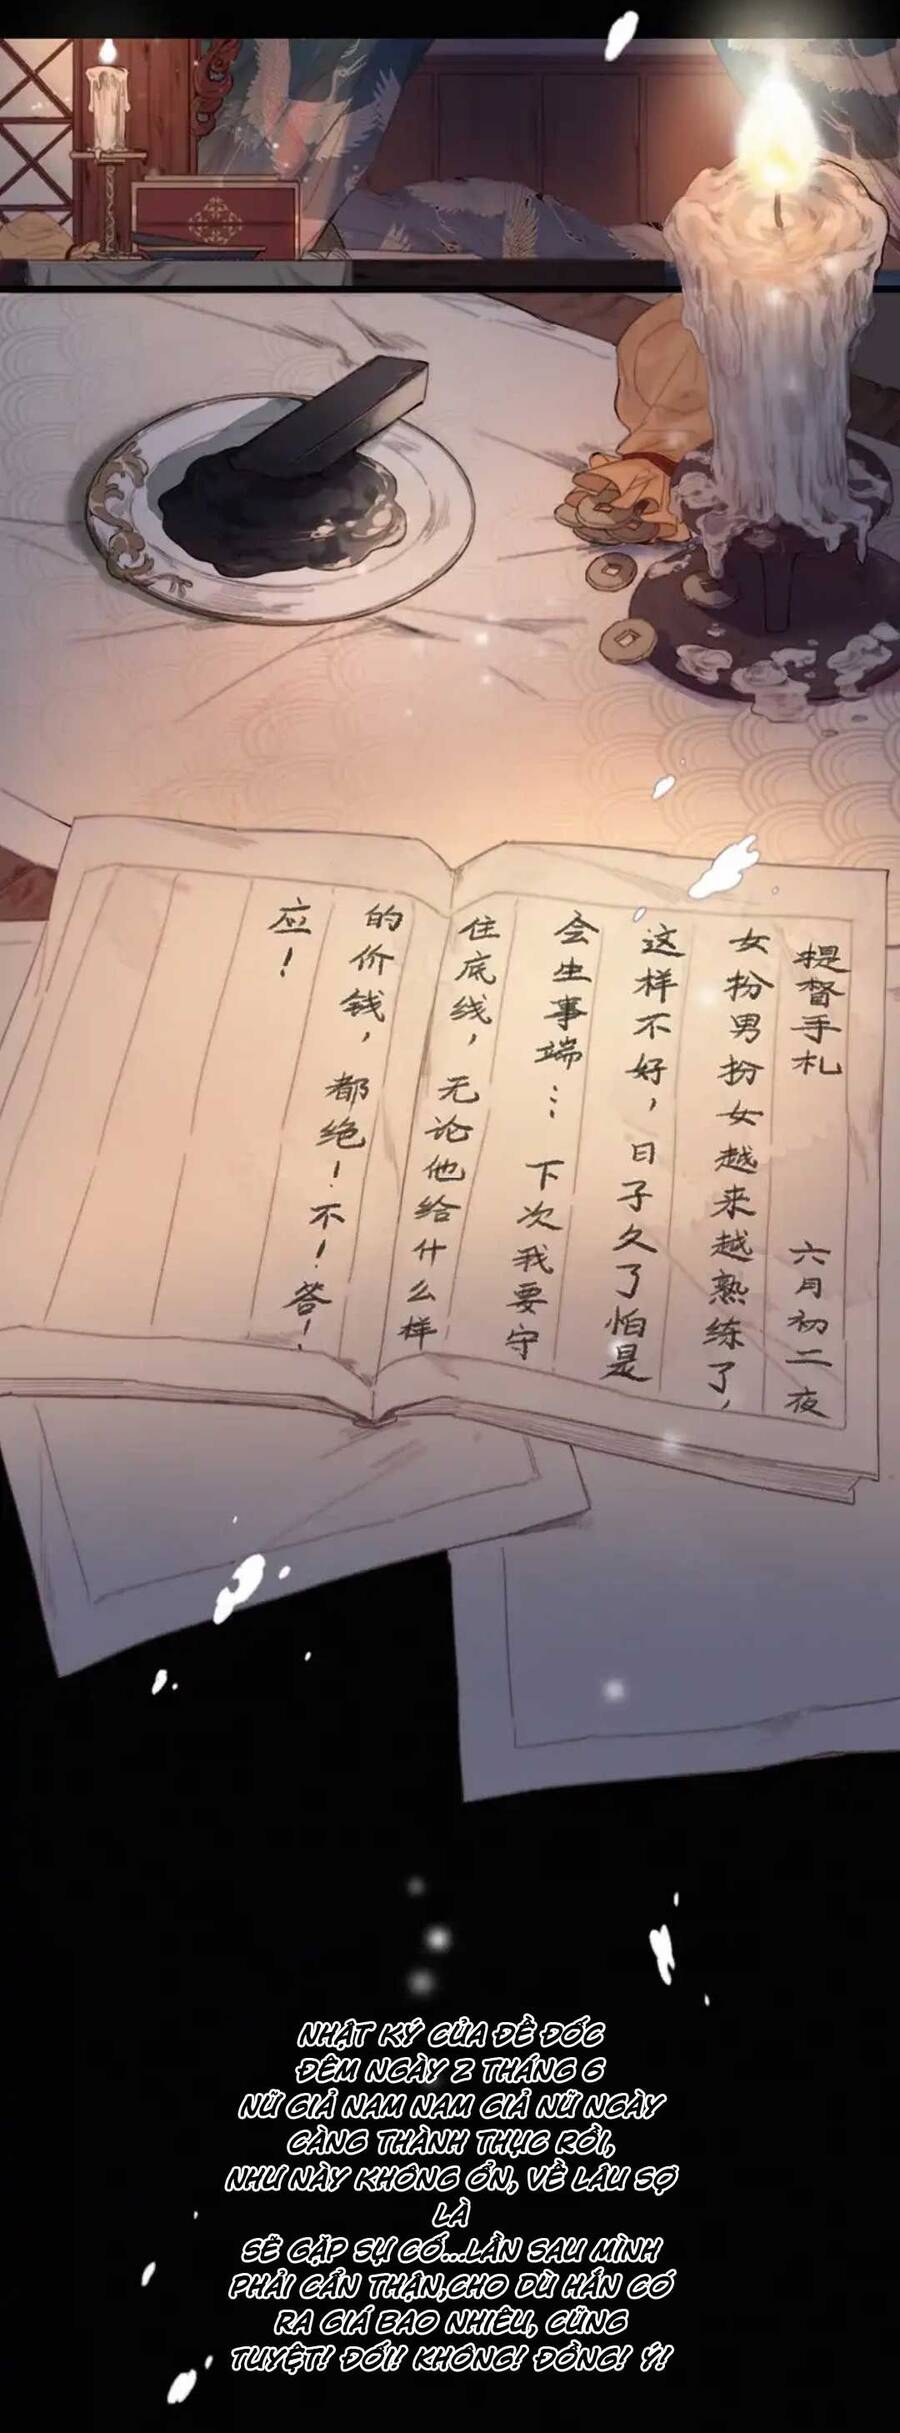 提督手札 六月初二夜
女扮男扮女越来越熟练了，
这样不好，日子久了怕是
会生事端… 下次我要守
住底线，无论他给什么样
的价钱，都绝！不！答！
应！
NHẬT KÝ CỦA ĐỀ ĐỐC
ĐÊM NGÀY 2 THÁNG 6
NỮ GIẢ NAM NAM GIẢ NỮ NGÀY
CÀNG THÀNH THỤC RỒI,
NHƯ NÀY KHÔNG ỔN, VỀ LÂU SỢ
LÀ
SẼ GẶP SỰ CỐ...LẦN SAU MÌNH
PHẢI CẨN THẬN,CHO DÙ HẮN CÓ
RA GIÁ BAO NHIÊU, CŨNG
TUYỆT! ĐỐI! KHÔNG! ĐỒNG! Ý!